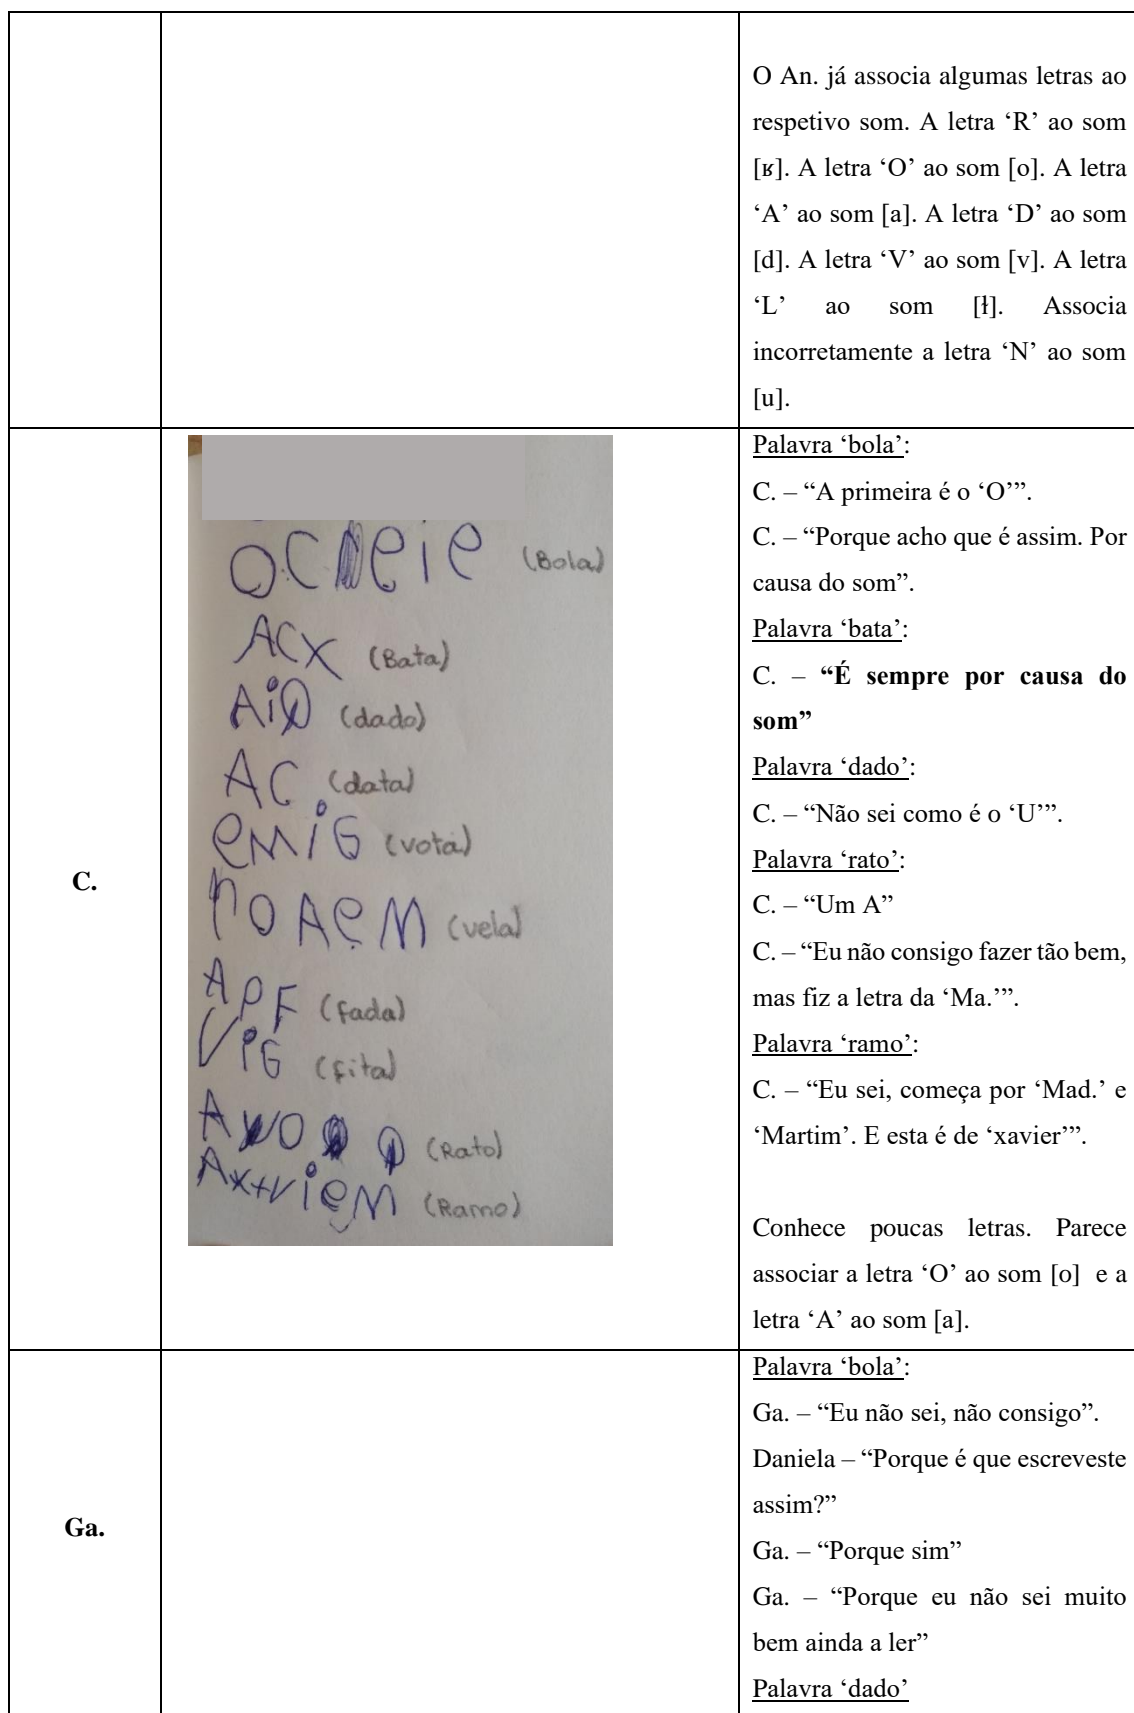 O An. já associa algumas letras ao
respetivo som. A letra ‘R’ ao som
[ʁ]. A letra ‘O’ ao som [o]. A letra
‘A’ ao som [a]. A letra ‘D’ ao som
[d]. A letra ‘V’ ao som [v]. A letra
‘L’ ao som [ɫ]. Associa
incorretamente a letra ‘N’ ao som
[u].
C.
(Bola)
ACX (Bata)
AiO (dado)
AC (data)
eMiG (vota)
nOAeM (vela)
APF (fada)
ViG (fita)
(Rato)
(Ramo)
Palavra ‘bola’:
C. – “A primeira é o ‘O’”.
C. – “Porque acho que é assim. Por
causa do som”.
Palavra ‘bata’:
C. – “É sempre por causa do
som”
Palavra ‘dado’:
C. – “Não sei como é o ‘U’”.
Palavra ‘rato’:
C. – “Um A”
C. – “Eu não consigo fazer tão bem,
mas fiz a letra da ‘Ma.’”.
Palavra ‘ramo’:
C. – “Eu sei, começa por ‘Mad.’ e
‘Martim’. E esta é de ‘xavier’”.
Conhece poucas letras. Parece
associar a letra ‘O’ ao som [o] e a
letra ‘A’ ao som [a].
Ga.
Palavra ‘bola’:
Ga. – “Eu não sei, não consigo”.
Daniela – “Porque é que escreveste
assim?”
Ga. – “Porque sim”
Ga. – “Porque eu não sei muito
bem ainda a ler”
Palavra ‘dado’